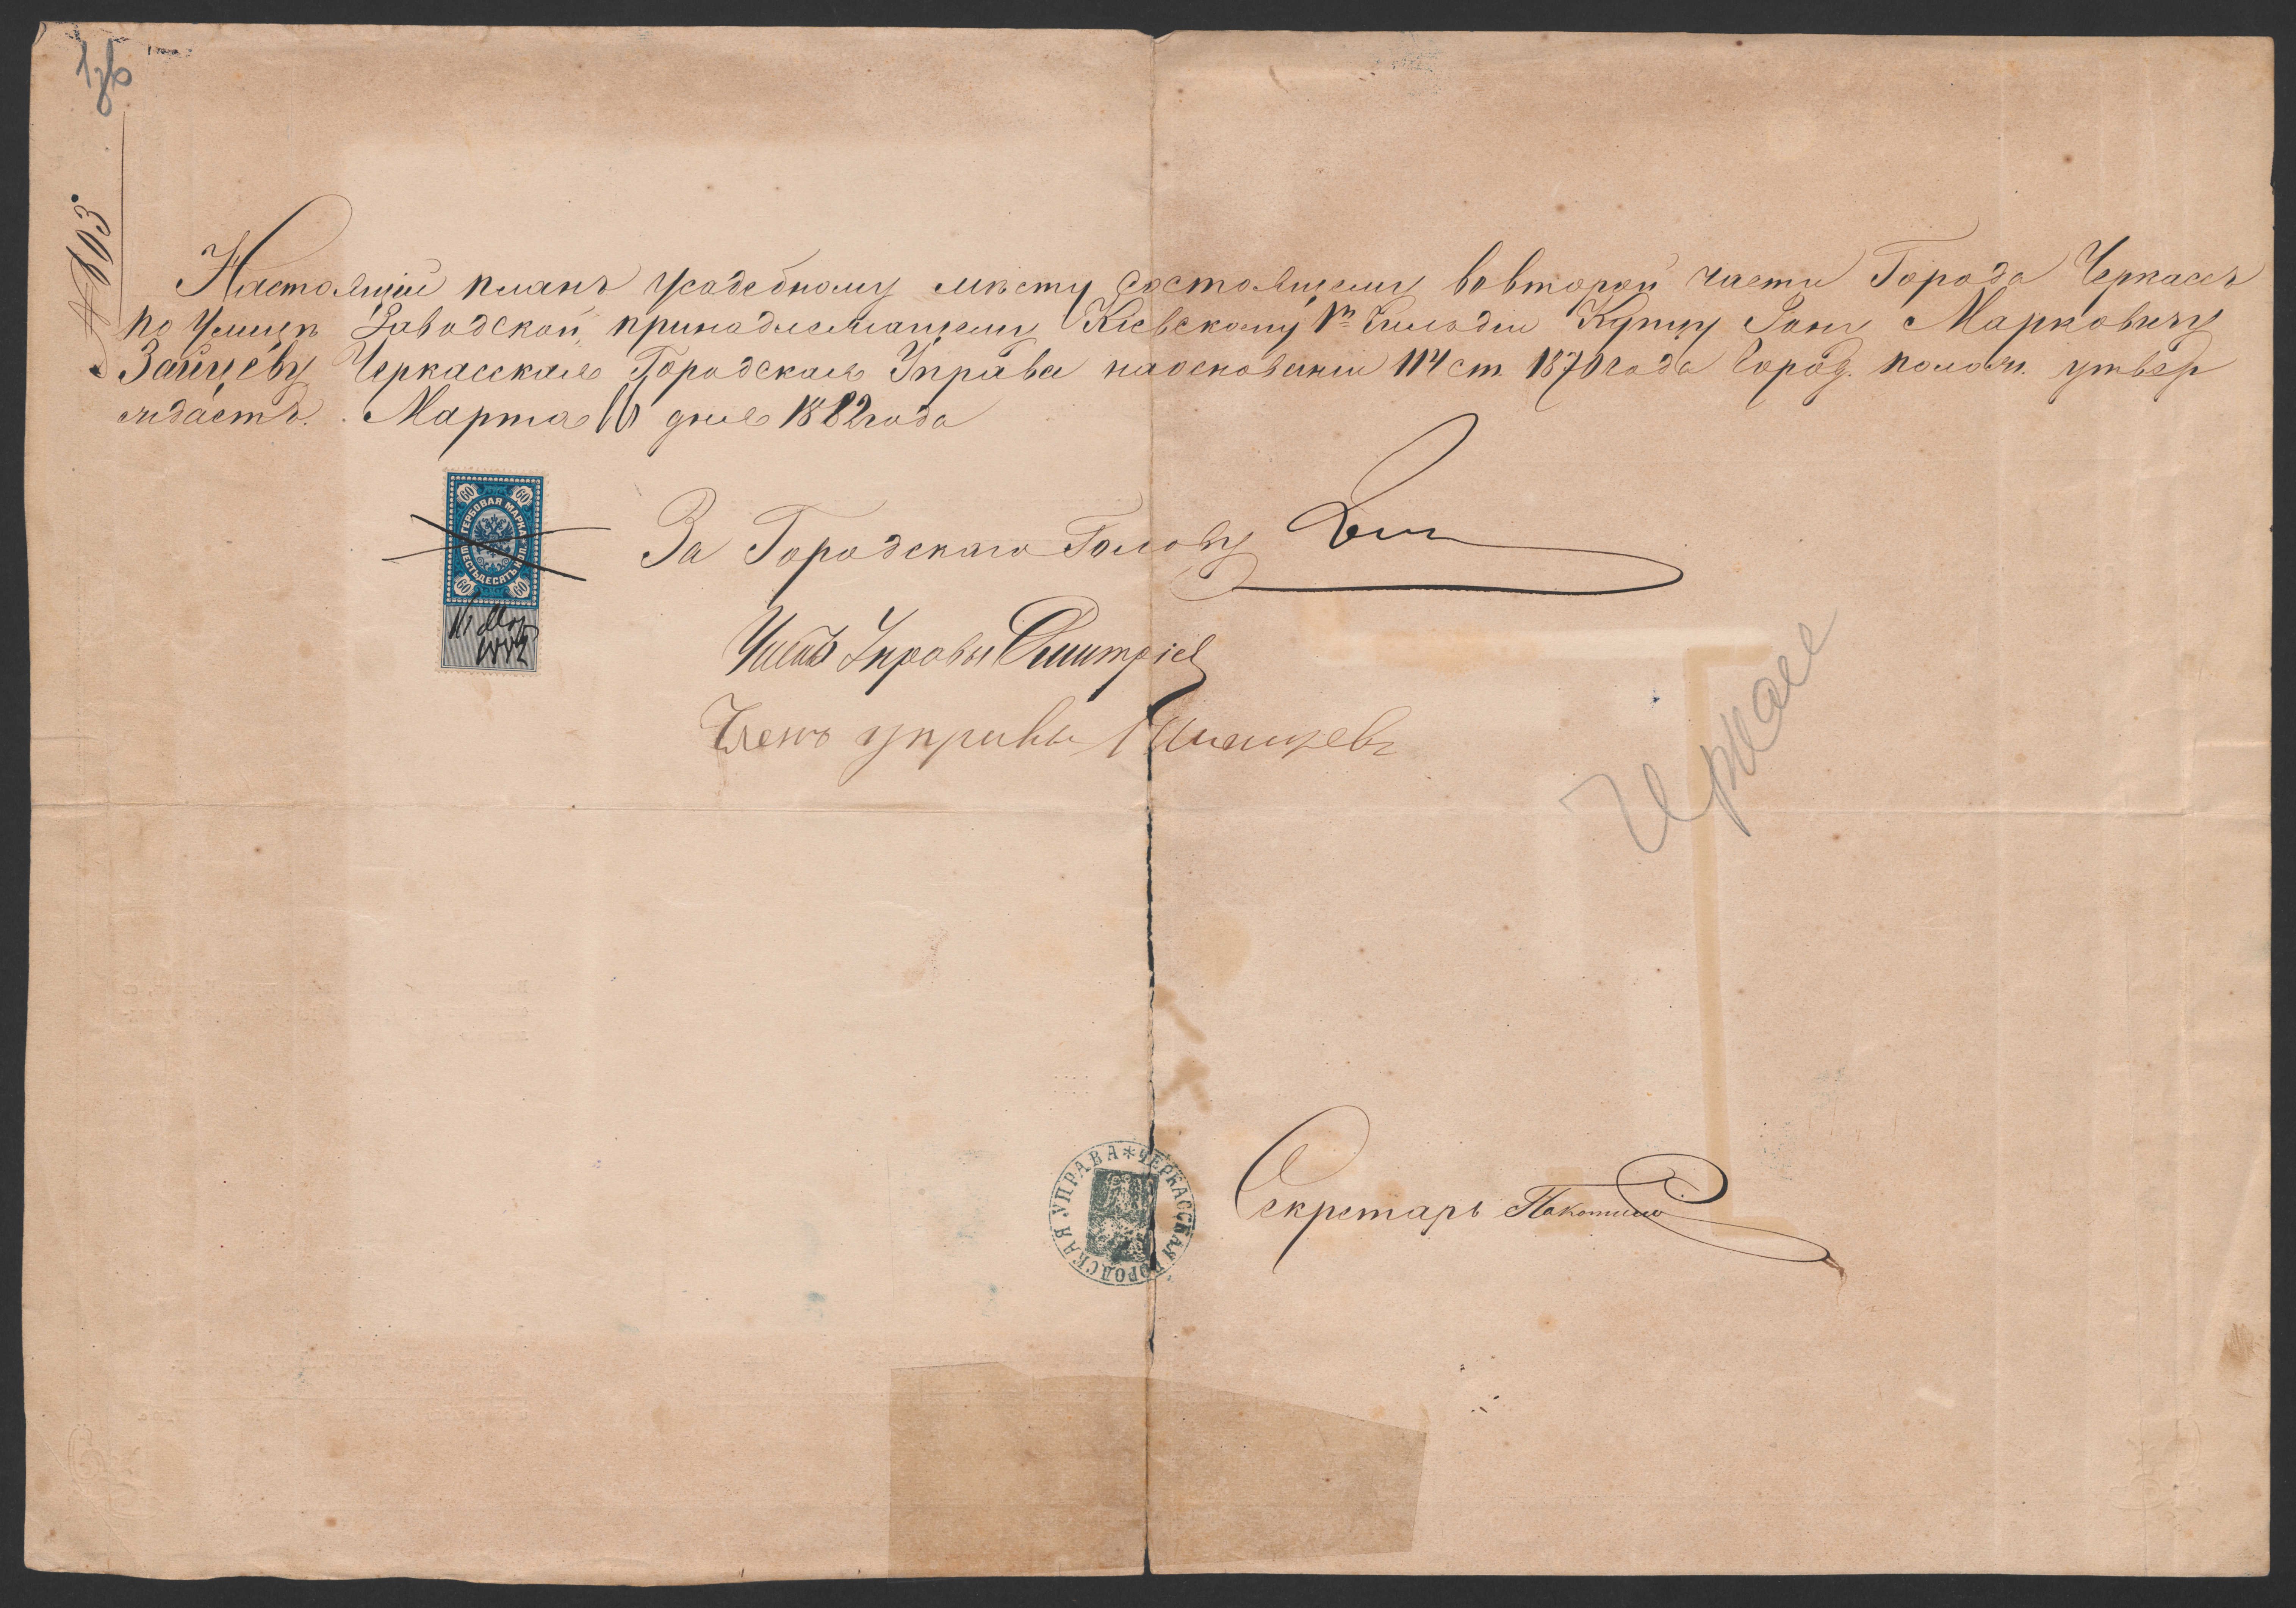 № 103
Настоящій планъ усадебному мѣсту состоящему во второй части Города Черкассъ
по Улицѣ Заводской, принадлежащему Кіевскому 1й Гильдіи Купцу Іонѣ Марковичу
Зайцеву Черкасская Городская Управа на основаніи 114 ст. 1870 года Город. полож. утвер
ждаетъ. Марта 16 дня 1882 года
ГЕРБОВАЯ МАРКА
ШЕСТЬДЕСЯТЪ КОП.
60 60
60 60
16 Мар
1882
За Городскаго Голову
Членъ Управы Дмитріев
Членъ управы
Черкас
ЧЕРКАССКАЯ ГОРОДСКАЯ УПРАВА
Секретарь